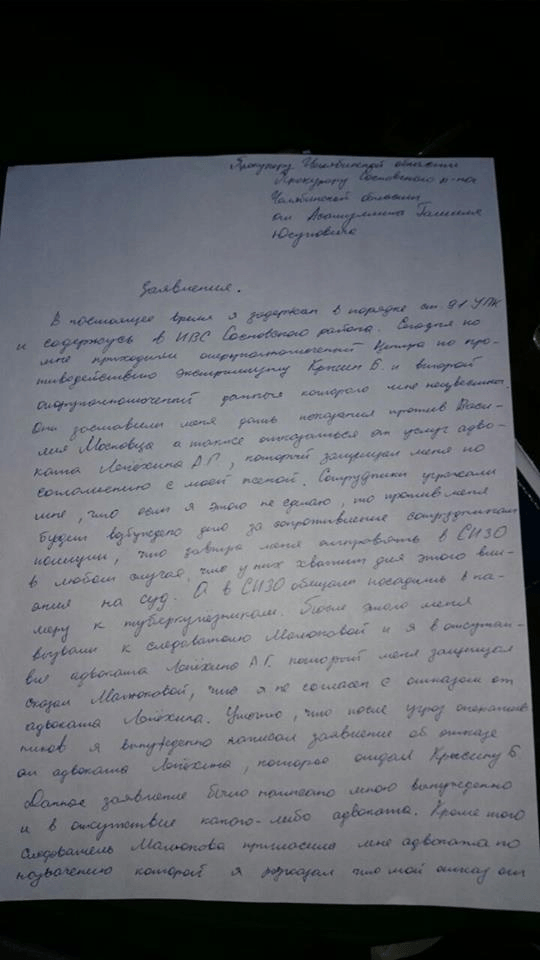 Прокурору Челябинской области
Прокурору Сосновского р-на
Челябинской области
от Асатуллина Гамиля
Юсуповича
Заявление.
В настоящее время я задержан в порядке ст. 91 УПК
и содержусь в ИВС Сосновского района. Сегодня ко
мне приходили оперуполномоченный Центра по про-
тиводействию экстремизму Крысин Б. и второй
оперуполномоченный данные которого мне неизвестны.
Они заставили меня дать показания против Васи-
лия Московца а также отказаться от услуг адво-
ката Лепёхина А.Г., который защищал меня по
соглашению с моей женой. Сотрудники угрожали
мне, что если я этого не сделаю, то против меня
будет возбуждено дело за сопротивление сотрудникам
полиции, что завтра меня отправлять в СИЗО
в любом случае, что у них хватит для этого вли-
яния на суд. А в СИЗО обещали посадить в ка-
меру к туберкулёзникам. После этого меня
вызвали к следователю Малюковой и я в отсутст-
вие адвоката Лепёхина А.Г. который меня защищал
сказал Малюковой, что я не согласен с отказом от
адвоката Лепёхина. Уточню, что после угроз оператив
ников я вынужденно написал заявление об отказе
от адвоката Лепёхина, которое отдал Крысину Б.
Данное заявление было написано мною вынужденно
и в отсутствие какого-либо адвоката. Кроме того
следователь Малюкова пригласила мне адвоката по
назначению которой я сказал что мой отказ от